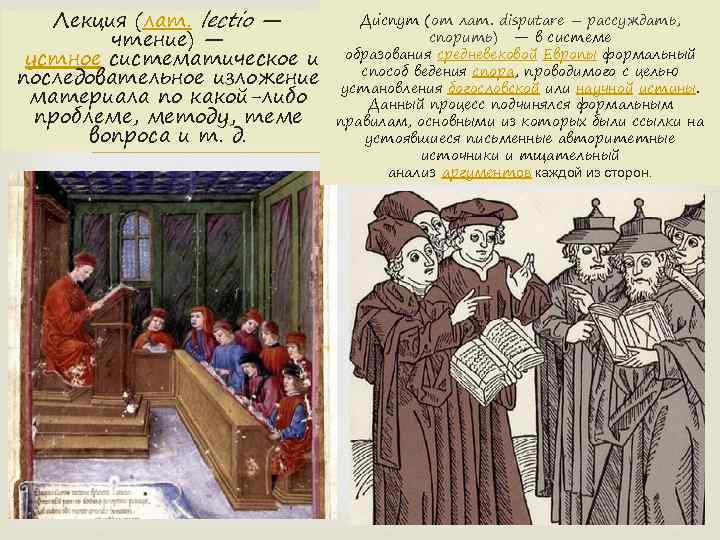 Лекция (лат. lectio —
чтение) —
устное систематическое и
последовательное изложение
материала по какой-либо
проблеме, методу, теме
вопроса и т. д.
Ди́спут (от лат. disputare — рассуждать,
спорить) — в системе
образования средневековой Европы формальный
способ ведения спора, проводимого с целью
установления богословской или научной истины.
Данный процесс подчинялся формальным
правилам, основными из которых были ссылки на
устоявшиеся письменные авторитетные
источники и тщательный
анализ аргументов каждой из сторон.